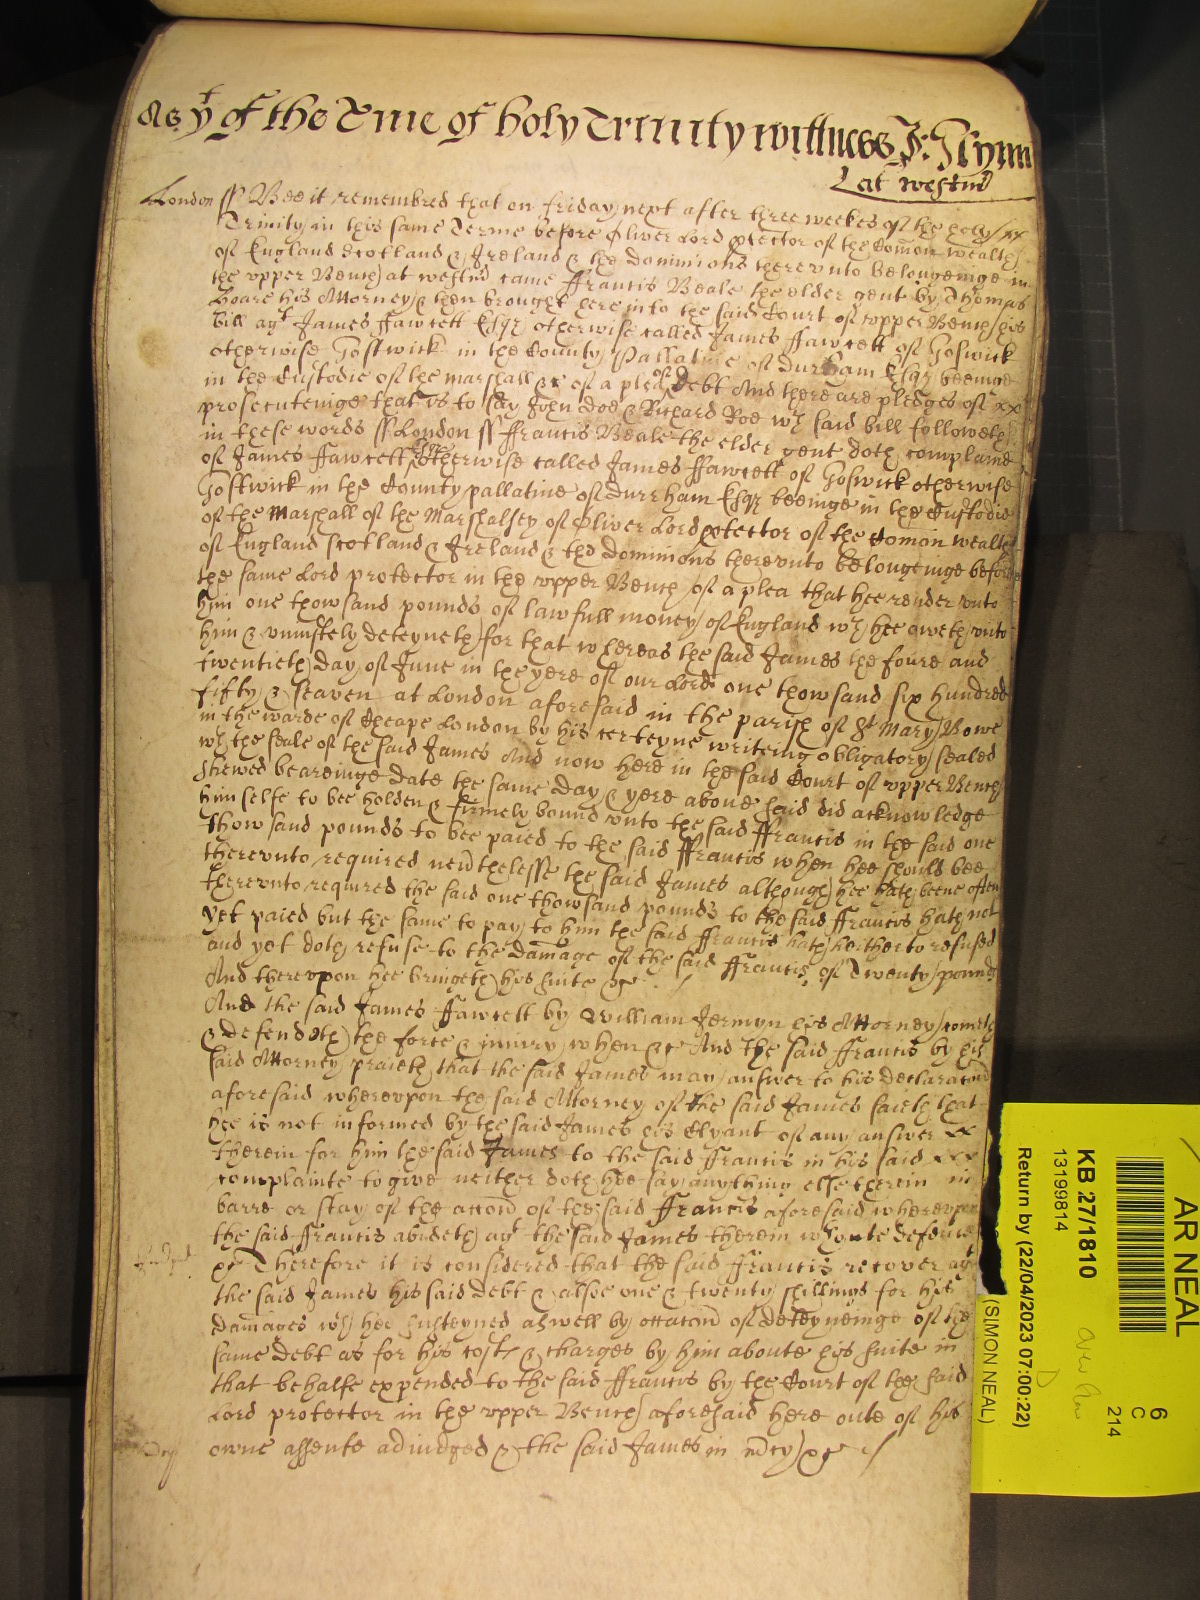 As yt of the Tme of holy Trinity wittnes J: Glynn
Lat westm
London ss Bee it remembred that on friday next after three weekes of the holy xx
Trinity in this same Terme before Oliver Lord ptector of the Comon wealth
of England Scotland & Ireland & the dominions therevnto belongeinge in
the vpper Bench at westm came ffrancis Beale the elder gent by Thomas
Hoare his Attorney & then brought here into the said Court of vpper Bench his
Bill agt James ffawcett Esqr otherwise called James ffawcett of Goswick
otherwise Gostwick in the County Pallatine of Durham Esqr beeinge
in the Custodie of the marshall &c of a plea of Debt And there are pledges of xx
prosecuteinge that is to say John Doe & Richard Roe wch said bill followeth
in these words ss London ss ffrancis Beale the elder gent doth complaine
of James ffawcett Esqr otherwise called James ffawcett of Goswick otherwise
Gostwick in the County pallatine of Durrham Esqr beeinge in the Custodie
of the Marshall of the Marshalsey of Oliver Lord ptector of the Comon wealth
of England Scotland & Ireland & the Dominions therevnto belongeinge before
the same Lord protector in the vpper Bench of a plea that hee render vnto
him one thowsand pounds of lawfull money of England wch hee oweth vnto
him & vniustely deteyneth for that whereas the said James the foure and
twentieth day of June in the yere of our Lord one thowsand six hundred
fifty & seaven at London aforesaid in the parish of St Mary Bowe
in the warde of Cheape London by his certeyne writeing obligatory sealed
wth the seale of the said James And now here in the said Court of vpper Bench
shewed beareinge date the same day & yere aboue said did acknowledge
himselfe to bee holden & firmely bound vnto the said ffrancis in the said one
thowsand pounds to bee paied to the said ffrancis when hee should bee
therevnto required nevthelesse the said James although hee hath beene often
therevnto required the said one thowsand pounds to the said ffrancis hath not
yet paied but the same to pay to him the said ffrancis hath heitherto refused
and yet doth refuse to the damage of the said ffrancis of Twenty pounds
And therevpon hee bringeth his suite &c
And the said James ffawcett by William Jermyn his Attorney cometh
& defendeth the force & iniury when &c And the said ffrancis by his
said Attorney praieth that the said James may answer to his declaracon
aforesaid wherevpon the said Attorney of the said James saieth that
hee is not informed by the said James his Clyant of any answer xx
therein for him the said James to the said ffrancis in his said xxx
complainte to give neither doth hee say anything else therein in
barre or stay of the accon of the said ffrancis aforesaid wherevpon
the said ffrancis abideth agt the said James therein wthoute defence
&c Therefore it is considered that the said ffrancis recover agt
the said James his said debt & alsoe one & twenty shillings for his
damages wch hee susteyned aswell by occacon of deteyneinge of the
same debt as for his costs & charges by him aboute his suite in
that behalfe expended to the said ffrancis by the Court of the said
Lord protector in the vpper Bench aforesaid here oute of his
owne assente adiudged & the said James in mcy &c
AR NEAL
6
C
214
KB 27/1810
13199814
Return by (22/04/2023 07:00:22)
(SIMON NEAL)
D